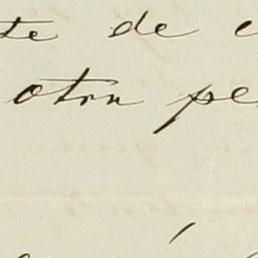 te de
otra pe